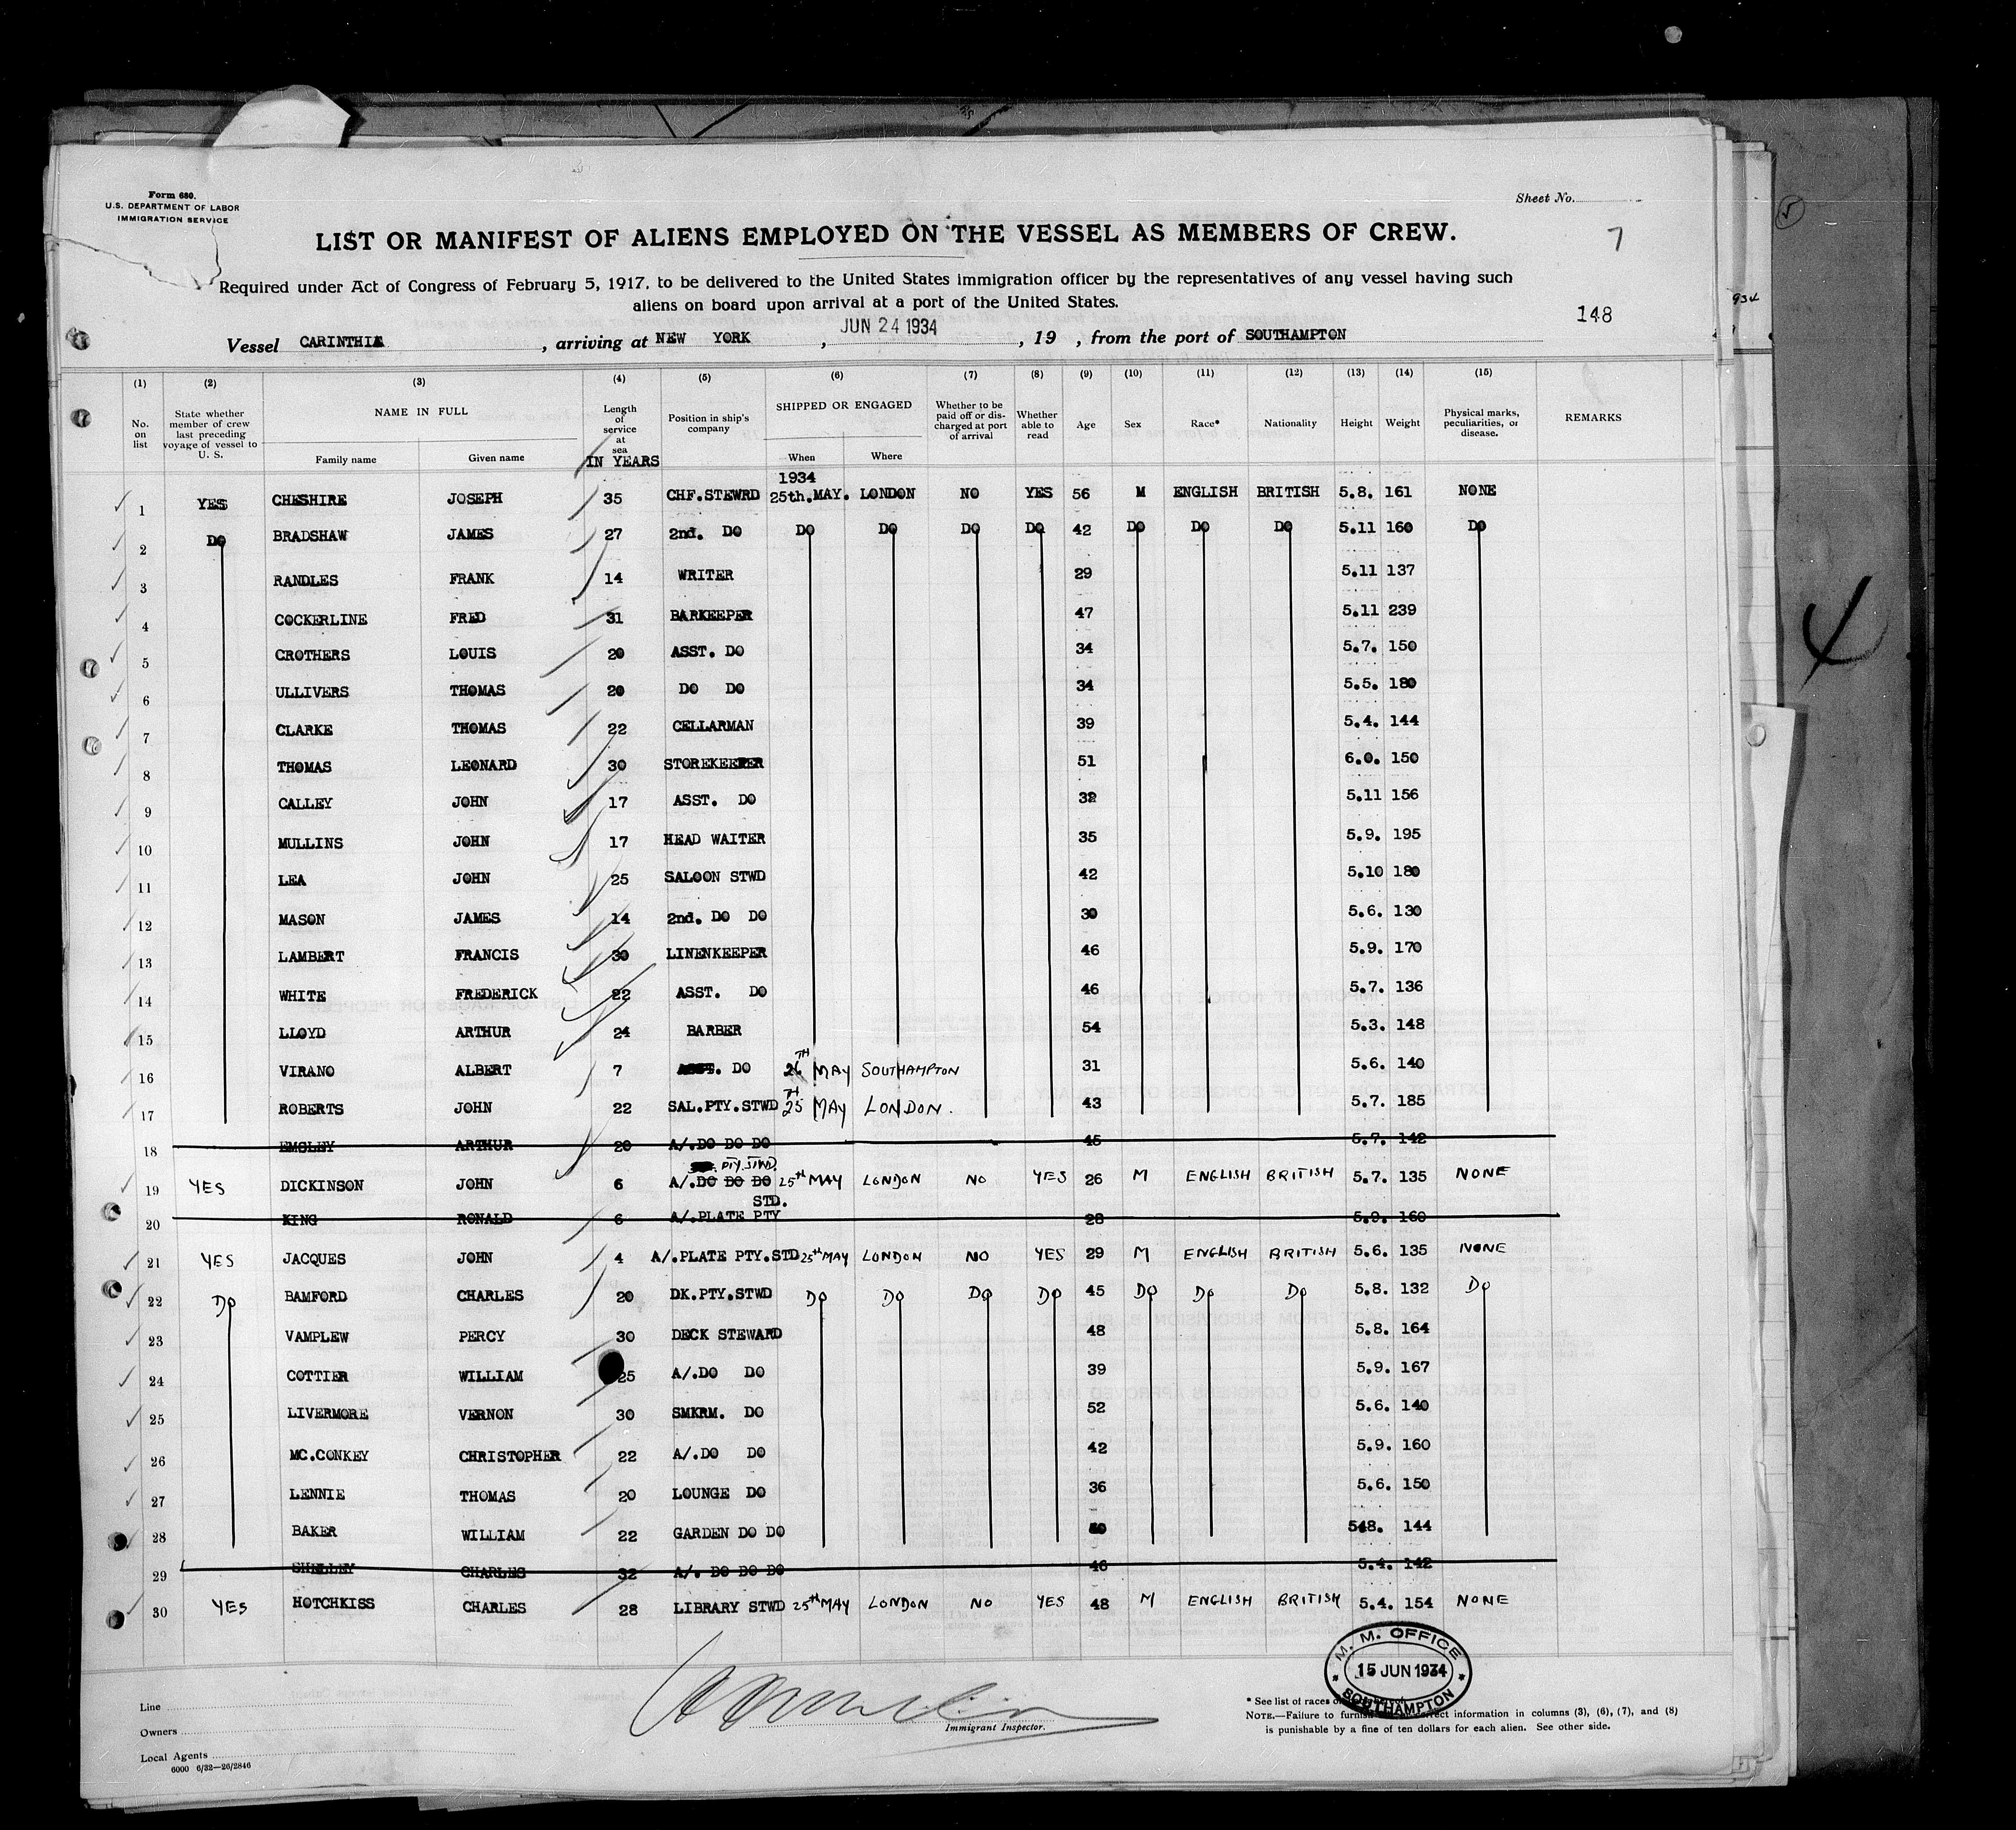 Form 680.
U.S. DEPARTMENT OF LABOR
IMMIGRATION SERVICE
Sheet No.
LIST OR MANIFEST OF ALIENS EMPLOYED ON THE VESSEL AS MEMBERS OF CREW.
7
Required under Act of Congress of February 5, 1917, to be delivered to the United States immigration officer by the representatives of any vessel having such
aliens on board upon arrival at a port of the United States.
148
Vessel CARINTHIA, arriving at NEW YORK, JUN 24 1934, 19 , from the port of SOUTHAMPTON
(1) (2) (3) (4) (5) (6) (7) (8) (9) (10) (11) (12) (13) (14) (15)
No. on list
State whether member of crew last preceding voyage of vessel to U. S.
NAME IN FULL
Family name Given name
Length of service at sea
IN YEARS
Position in ship's company
SHIPPED OR ENGAGED
When Where
Whether to be paid off or discharged at port of arrival
Whether able to read
Age Sex Race* Nationality Height Weight
Physical marks, peculiarities, or disease.
REMARKS
1934
1 YES CHESHIRE JOSEPH 35 CHF.STEWRD 25th.MAY. LONDON NO YES 56 M ENGLISH BRITISH 5.8. 161 NONE
2 DO BRADSHAW JAMES 27 2nd. DO DO DO DO DO 42 DO DO DO 5.11 160 DO
3 RANDLES FRANK 14 WRITER 29 5.11 137
4 COCKERLINE FRED 31 BARKEEPER 47 5.11 239
5 CROTHERS LOUIS 20 ASST. DO 34 5.7. 150
6 ULLIVERS THOMAS 20 DO DO 34 5.5. 180
7 CLARKE THOMAS 22 CELLARMAN 39 5.4. 144
8 THOMAS LEONARD 30 STOREKEEPER 51 6.0. 150
9 CALLEY JOHN 17 ASST. DO 32 5.11 156
10 MULLINS JOHN 17 HEAD WAITER 35 5.9. 195
11 LEA JOHN 25 SALOON STWD 42 5.10 180
12 MASON JAMES 14 2nd. DO DO 30 5.6. 130
13 LAMBERT FRANCIS 30 LINENKEEPER 46 5.9. 170
14 WHITE FREDERICK 22 ASST. DO 46 5.7. 136
15 LLOYD ARTHUR 24 BARBER 54 5.3. 148
16 VIRANO ALBERT 7 ASST. DO 26TH MAY SOUTHAMPTON 31 5.6. 140
17 ROBERTS JOHN 22 SAL.PTY.STWD 25TH MAY LONDON. 43 5.7. 185
18 EMSLEY ARTHUR 20 A/.DO DO DO 45 5.7. 142
PTY. STWD.
19 YES DICKINSON JOHN 6 A/.DO DO DO 25th MAY LONDON NO YES 26 M ENGLISH BRITISH 5.7. 135 NONE
STD.
20 KING RONALD 6 A/.PLATE PTY 28 5.9. 160
21 YES JACQUES JOHN 4 A/.PLATE PTY.STD 25th MAY LONDON NO YES 29 M ENGLISH BRITISH 5.6. 135 NONE
22 DO BAMFORD CHARLES 20 DK.PTY.STWD DO DO DO DO 45 DO DO DO 5.8. 132 DO
23 VAMPLEW PERCY 30 DECK STEWARD 48 5.8. 164
24 COTTIER WILLIAM 25 A/.DO DO 39 5.9. 167
25 LIVERMORE VERNON 30 SMKRM. DO 52 5.6. 140
26 MC.CONKEY CHRISTOPHER 22 A/.DO DO 42 5.9. 160
27 LENNIE THOMAS 20 LOUNGE DO 36 5.6. 150
28 BAKER WILLIAM 22 GARDEN DO DO 548. 144
29 SHELLEY CHARLES 32 A/. DO DO DO 46 5.4. 142
30 YES HOTCHKISS CHARLES 28 LIBRARY STWD 25th MAY LONDON NO YES 48 M ENGLISH BRITISH 5.4. 154 NONE
M. M. OFFICE
15 JUN 1934
SOUTHAMPTON
Line
Owners
Local Agents
6000 6/32—26/2846
Immigrant Inspector.
* See list of races
NOTE.—Failure to furnish correct information in columns (3), (6), (7), and (8)
is punishable by a fine of ten dollars for each alien. See other side.